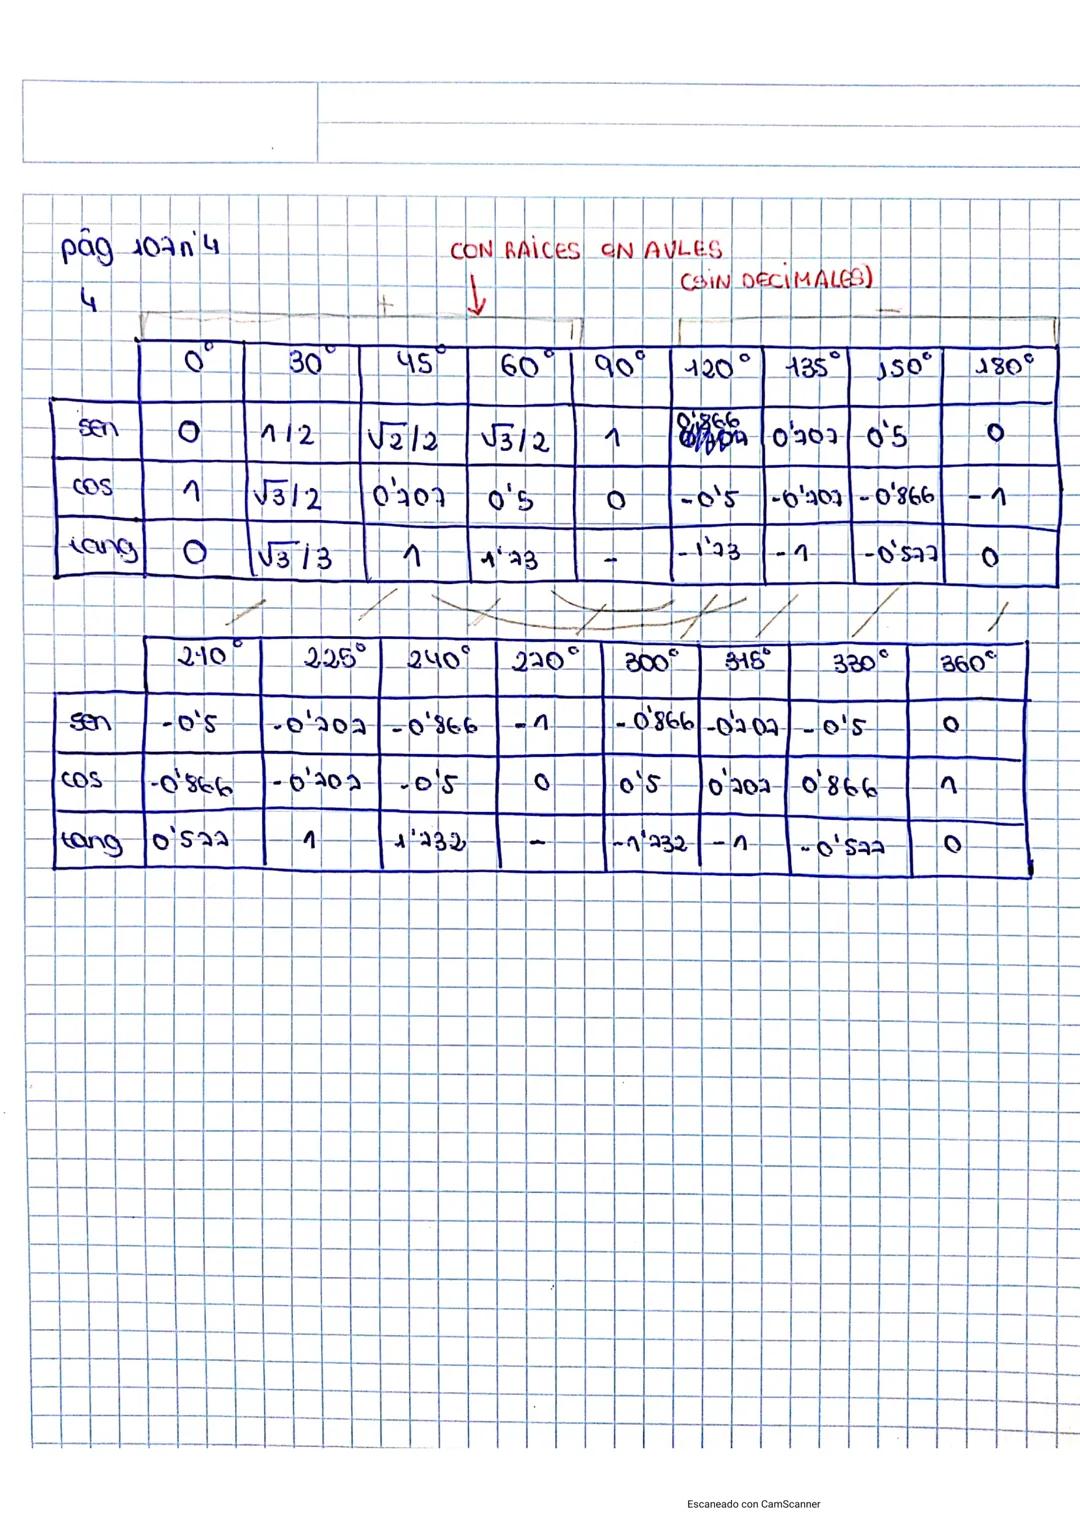 pág 107 nº4
CON RAÍCES EN AULES
(SIN DECIMALES)
4
+ −
0° 30° 45° 60° 90° 120° 135° 150° 180°
sen 0 1/2 √2/2 √3/2 1 0'866 0'707 0'5 0
cos 1 √3/2 0'707 0'5 0 -0'5 -0'707 -0'866 -1
tang 0 √3/3 1 1'73 - -1'73 -1 -0'577 0
210° 225° 240° 270° 300° 315° 330° 360°
sen -0'5 -0'707 -0'866 -1 -0'866 -0'707 -0'5 0
cos -0'866 -0'707 -0'5 0 0'5 0'707 0'866 1
tang 0'577 1 1'732 - -1'732 -1 -0'577 0
Escaneado con CamScanner